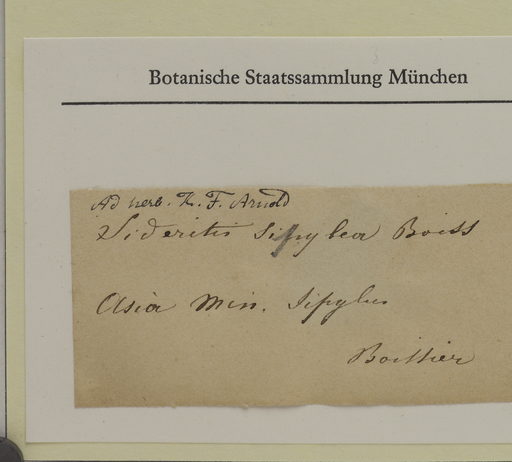 Botanische Staatssammlung München
Ad herb. K. F. Arnold
Sideritis Sipylea Boiss
Asia Min. Sipylus
Boissier